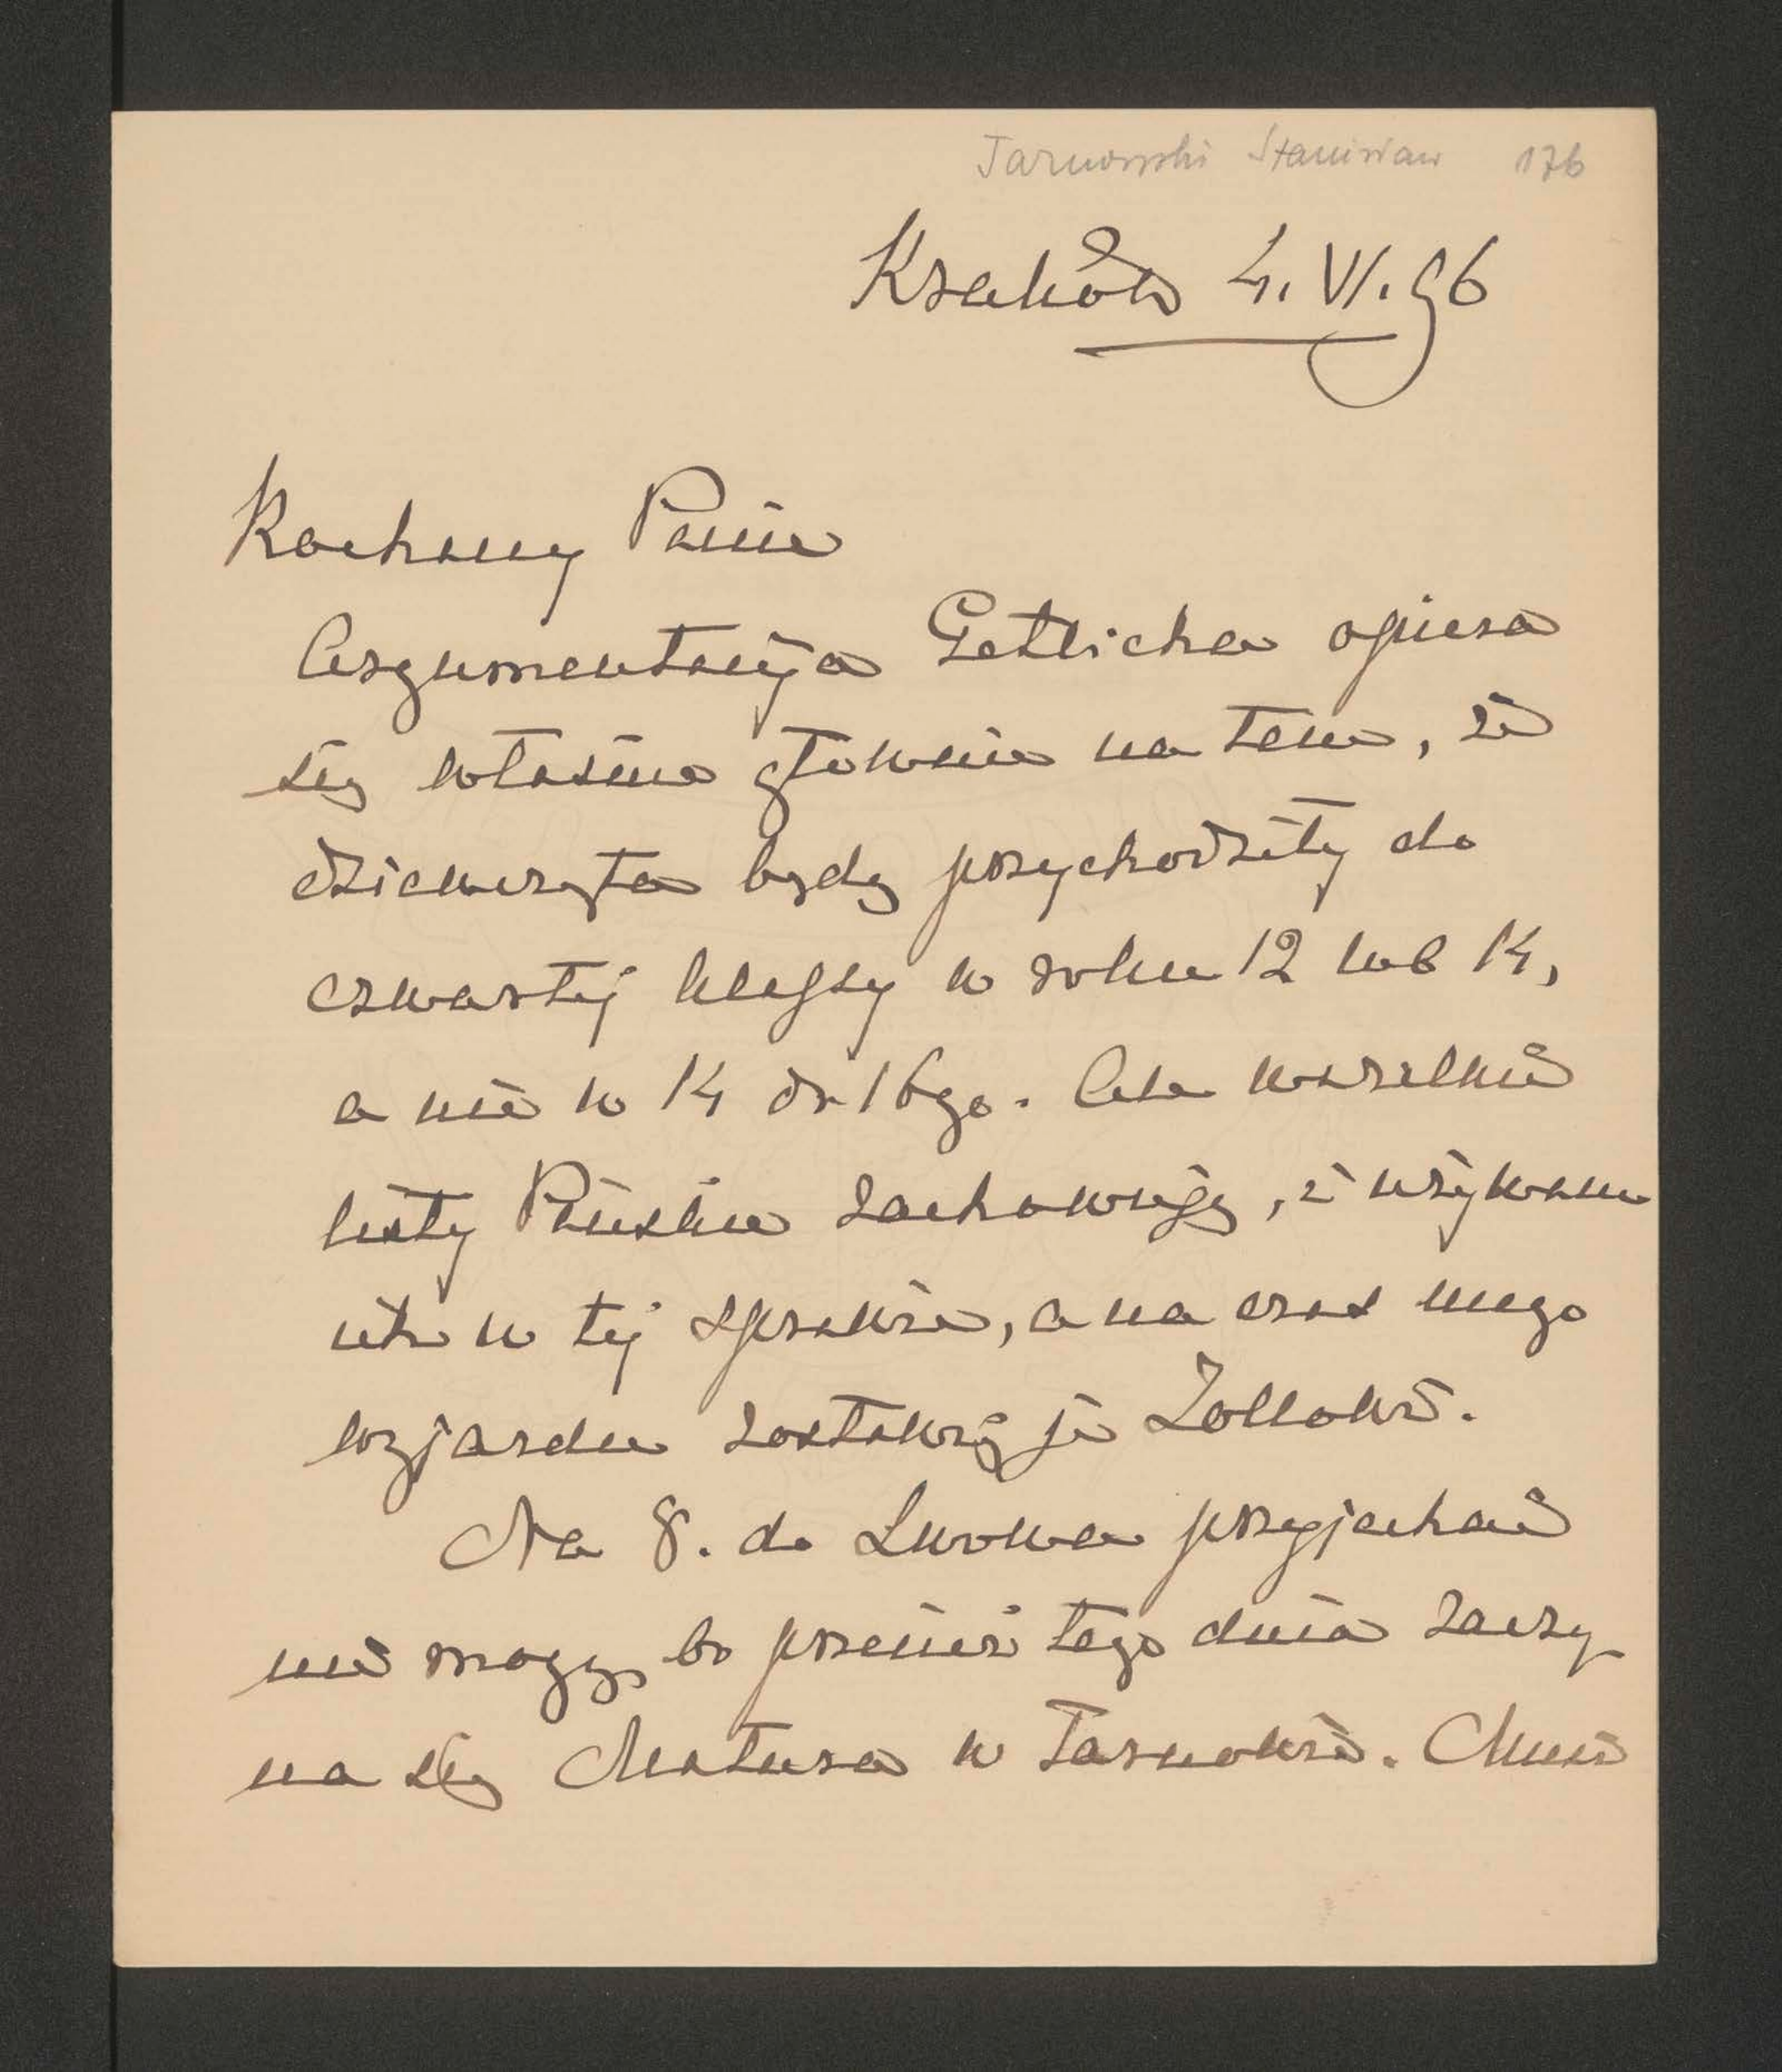 Tarnowski Stanisław 176
Kraków 4. VI. 96
Kochany Panie
Argumentacyja Getlicha opiera
się właśnie głownie na tem, że
dziewczęta będą przychodziły do
czwartej klassy w roku 12 lub 14,
a nie w 14 do 16go. Ale wszelkie
listy Pańskie zachowuję, i używam
ich w tej sprawie, a na czas mego
wyjazdu zostawię je Zollowi.
Na 8. do Lwowa przyjechać
nie mogę, bo przecież tego dnia zaczy
na się Matura w Tarnowie. Mnie